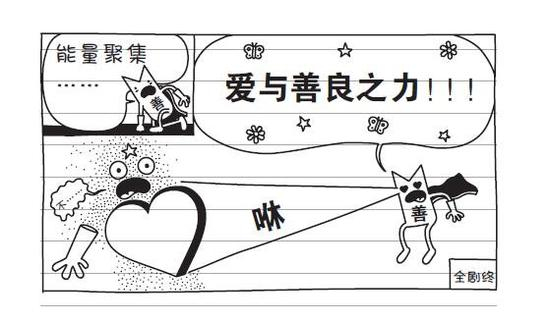 能量聚集
……
善
爱与善良之力!!!
不
咻
善
全剧终